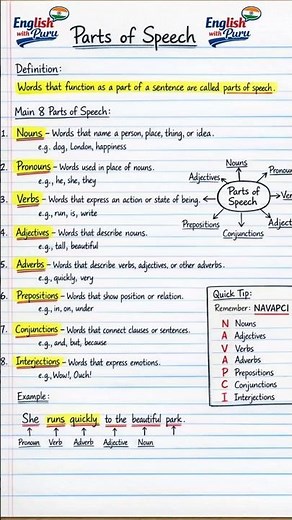 English with Puru
Parts of Speech
English with Puru
Definition:
Words that function as a part of a sentence are called parts of speech.
Main 8 Parts of Speech:
1. Nouns – Words that name a person, place, thing, or idea.
e.g., dog, London, happiness
2. Pronouns – Words used in place of nouns.
e.g., he, she, they
3. Verbs – Words that express an action or state of being.
e.g., run, is, write
4. Adjectives – Words that describe nouns.
e.g., tall, beautiful
5. Adverbs – Words that describe verbs, adjectives, or other adverbs.
e.g., quickly, very
6. Prepositions – Words that show position or relation.
e.g., in, on, under
7. Conjunctions – Words that connect clauses or sentences.
e.g., and, but, because
8. Interjections – Words that express emotions.
e.g., Wow!, Ouch!
Nouns
Adjectives
Pronou
Parts of Speech
Ver
Prepositions
Conjunctions
Adject
Quick Tip:
Remember: NAVAPCI
N Nouns
A Adjectives
V Verbs
A Adverbs
P Prepositions
C Conjunctions
I Interjections
Example:
She runs quickly to the beautiful park.
Pronoun Verb Adverb Adjective Noun